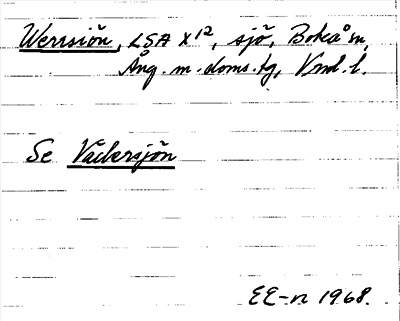 Werrsiön, LSA X¹², sjö, Bokeå sn,
Ång. m. doms.tg, Vnd. l.
Se Väckersjön
EE-n 1968.